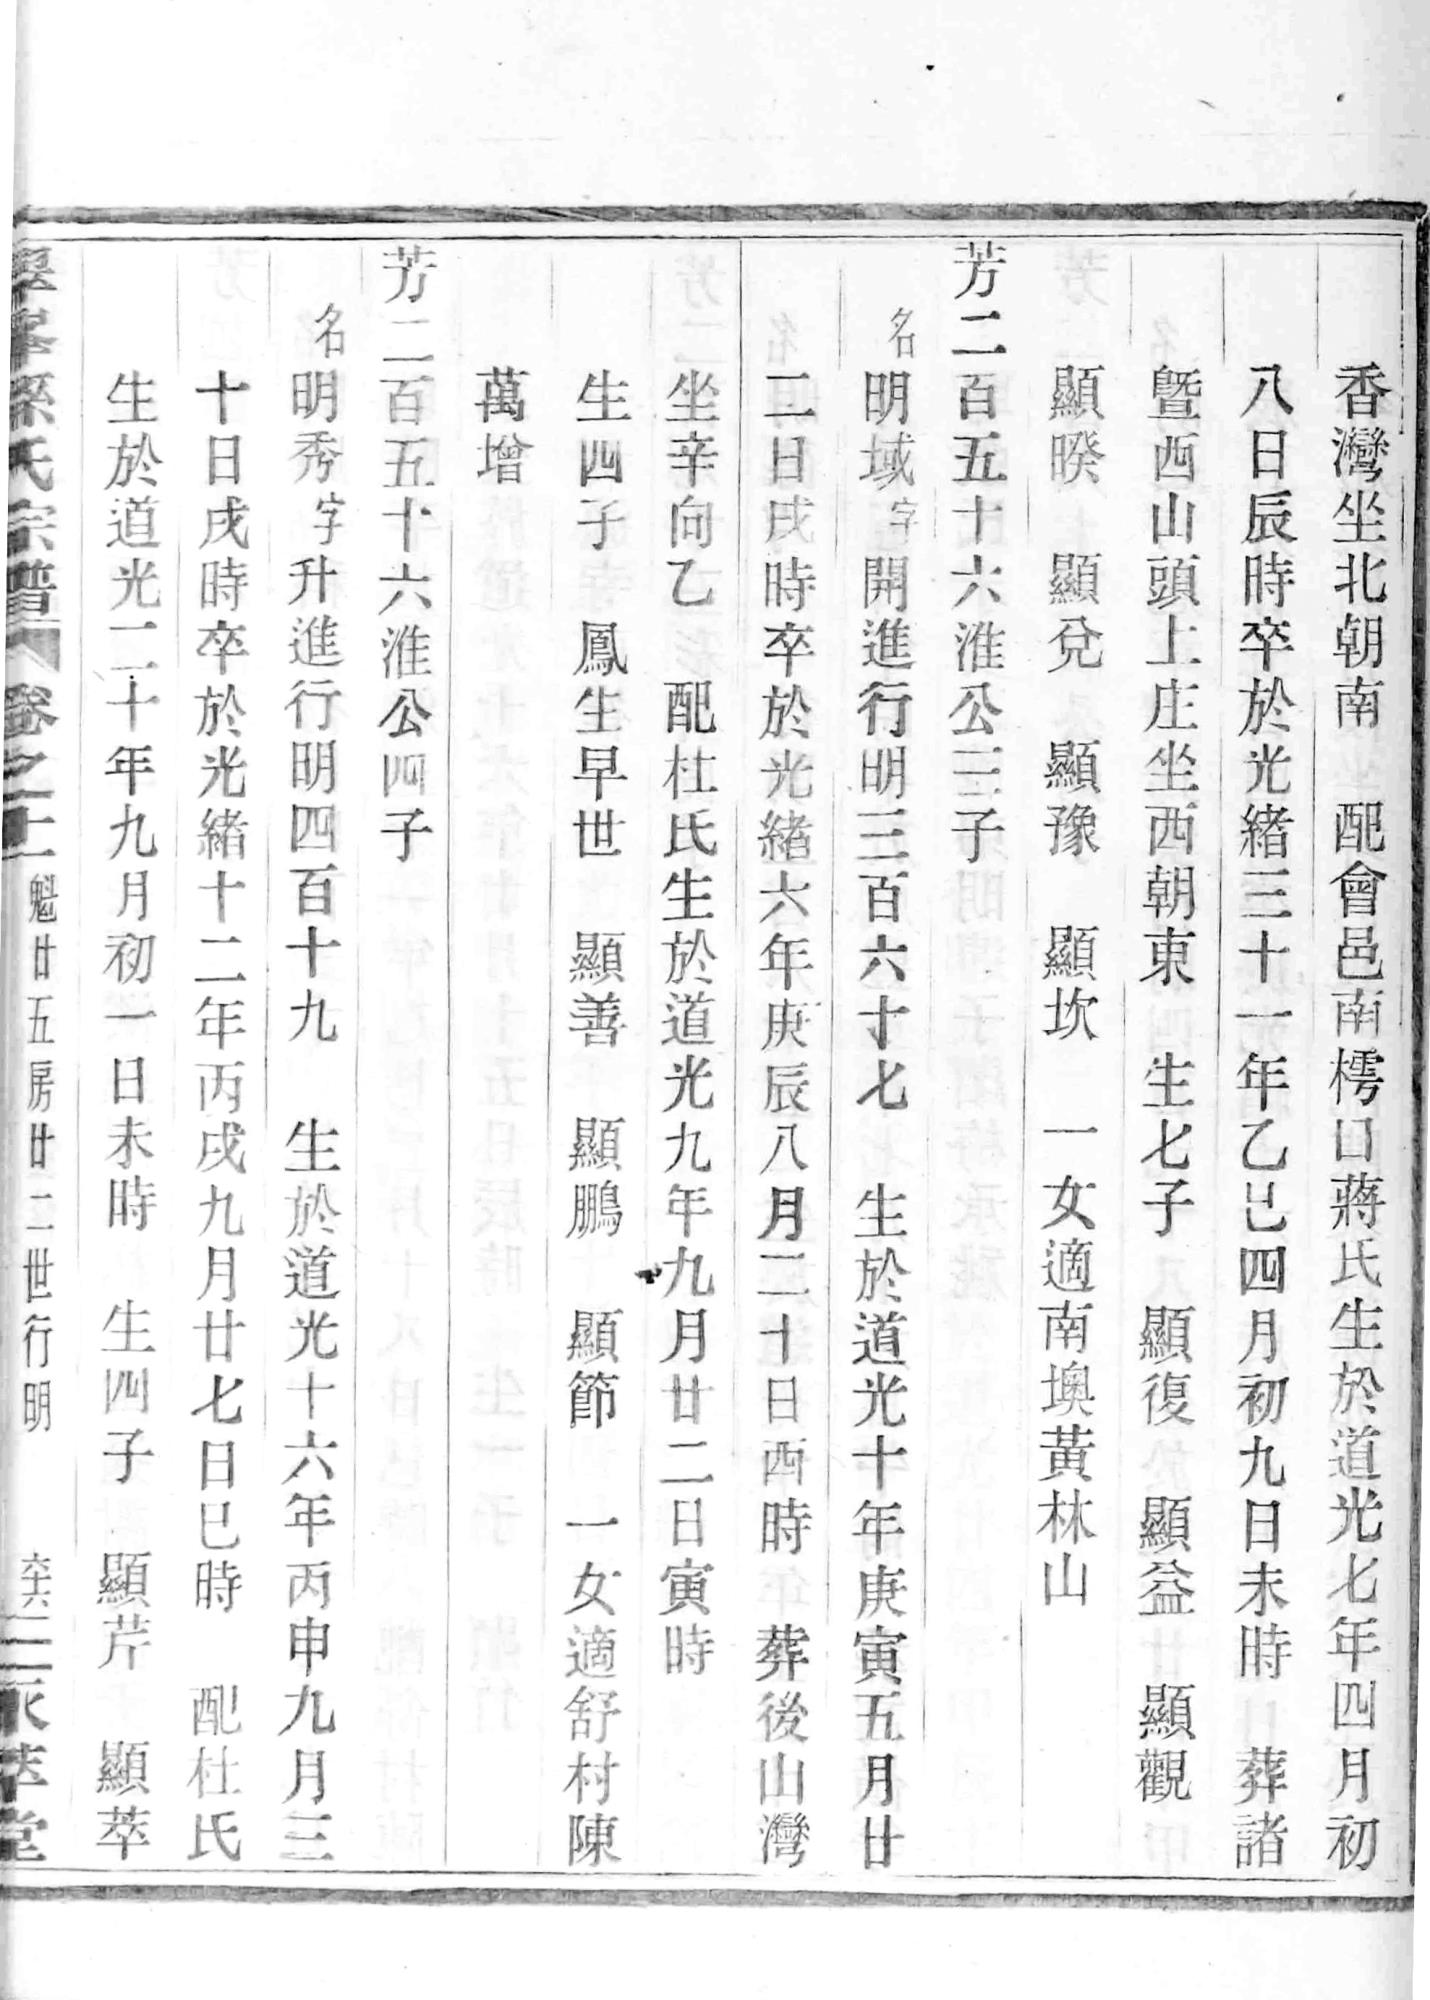 香灣坐北朝南　配會邑南樗口蔣氏生於道光七年四月初
八日辰時卒於光緒三十一年乙巳四月初九日未時　葬諸
暨西山頭上庄坐西朝東　生七子　顯復　顯益　顯觀
顯暌　顯兌　顯豫　顯坎　一女適南墺黃林山
芳二百五十六淮公三子
名明域字開進行明三百六十七　生於道光十年庚寅五月廿
二日戌時卒於光緒六年庚辰八月二十日酉時　葬後山灣
坐辛向乙　配杜氏生於道光九年九月廿二日寅時
生四子　鳳生早世　顯善　顯鵬　顯節　一女適舒村陳
萬增
芳二百五十六淮公四子
名明秀字升進行明四百十九　生於道光十六年丙申九月三
十日戌時卒於光緒十二年丙戌九月廿七日巳時　配杜氏
生於道光二十年九月初一日未時　生四子　顯芹　顯萃
孫氏宗譜　卷之　魁廿五房廿二世行明　萃堂